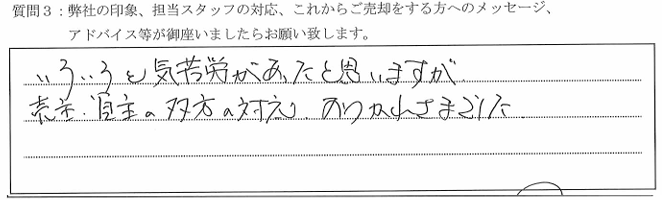 質問3：弊社の印象、担当スタッフの対応、これからご売却をする方へのメッセージ、
アドバイス等が御座いましたらお願い致します。
いろいろと気苦労があったと思いますが
売主・買主の双方の対応 おつかれさまでした